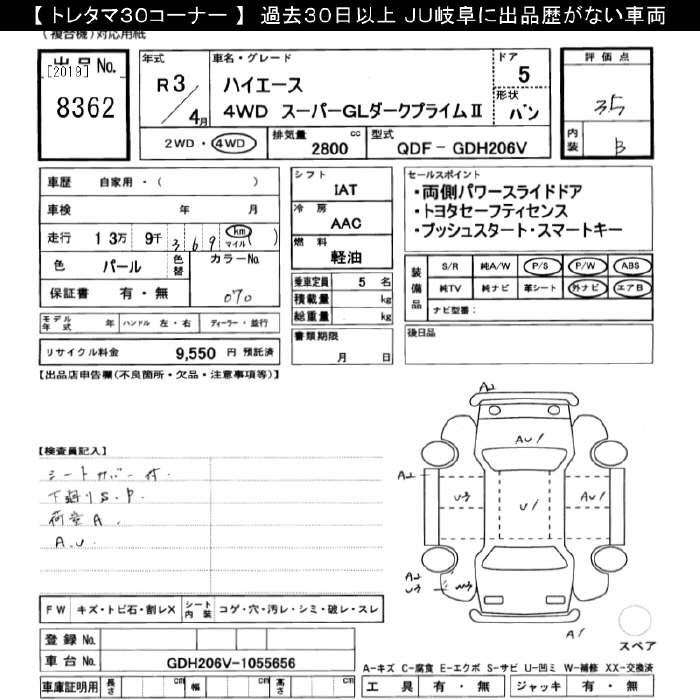 【トレタマ30コーナー】 過去30日以上 JU岐阜に出品歴がない車両
(複合機)対応用紙
出品No.
[2019]
8362
年式
R3/4月
車名・グレード
ハイエース
4WD スーパーGLダークプライムⅡ
ドア
5
形状
バン
2WD・4WD
排気量 2800 cc
型式 QDF-GDH206V
評価点
3.5
内装 B
車歴 自家用・( )
車検 年 月
走行 13万 9千 369 km マイル ( )
色 パール 色替 カラーNo. 070
保証書 有・無
シフト
IAT
冷房
AAC
燃料
軽油
乗車定員 5 名
積載量 kg
総重量 kg
セールスポイント
・両側パワースライドドア
・トヨタセーフティセンス
・プッシュスタート・スマートキー
装備品
S/R 純A/W P/S P/W ABS
純TV 純ナビ 革シート 外ナビ エアB
ナビ型番:
モデル年式 年 ハンドル 左・右 ディーラー・並行
リサイクル料金 9,550 円 預託済
書類期限
月 日
後日品
【出品店申告欄(不良箇所・欠品・注意事項等)】
【検査員記入】
シートカバー付.
下廻りS.P
荷室A.
A.U
A2
AU1
A2
U3
U1
AU1
A2
U3
W3
A1
スペア
FW キズ・トビ石・割レX シート内装 コゲ・穴・汚レ・シミ・破レ・スレ
登録No.
車台No. GDH206V-1055656
車庫証明用 長さ cm 幅 cm 高さ cm
A-キズ C-腐食 E-エクボ S-サビ U-凹ミ W-補修 XX-交換済
工具 有・無 ジャッキ 有・無